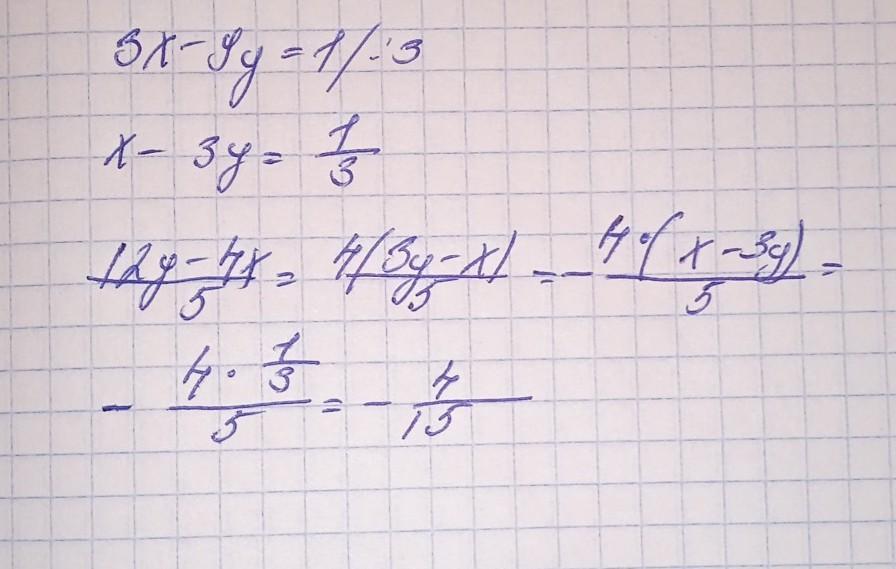 3x - 9y = 1 / :3
x - 3y = 1/3
(12y - 4x)/5 = 4(3y - x)/5 = - 4·(x - 3y)/5 =
- (4 · 1/3)/5 = - 4/15